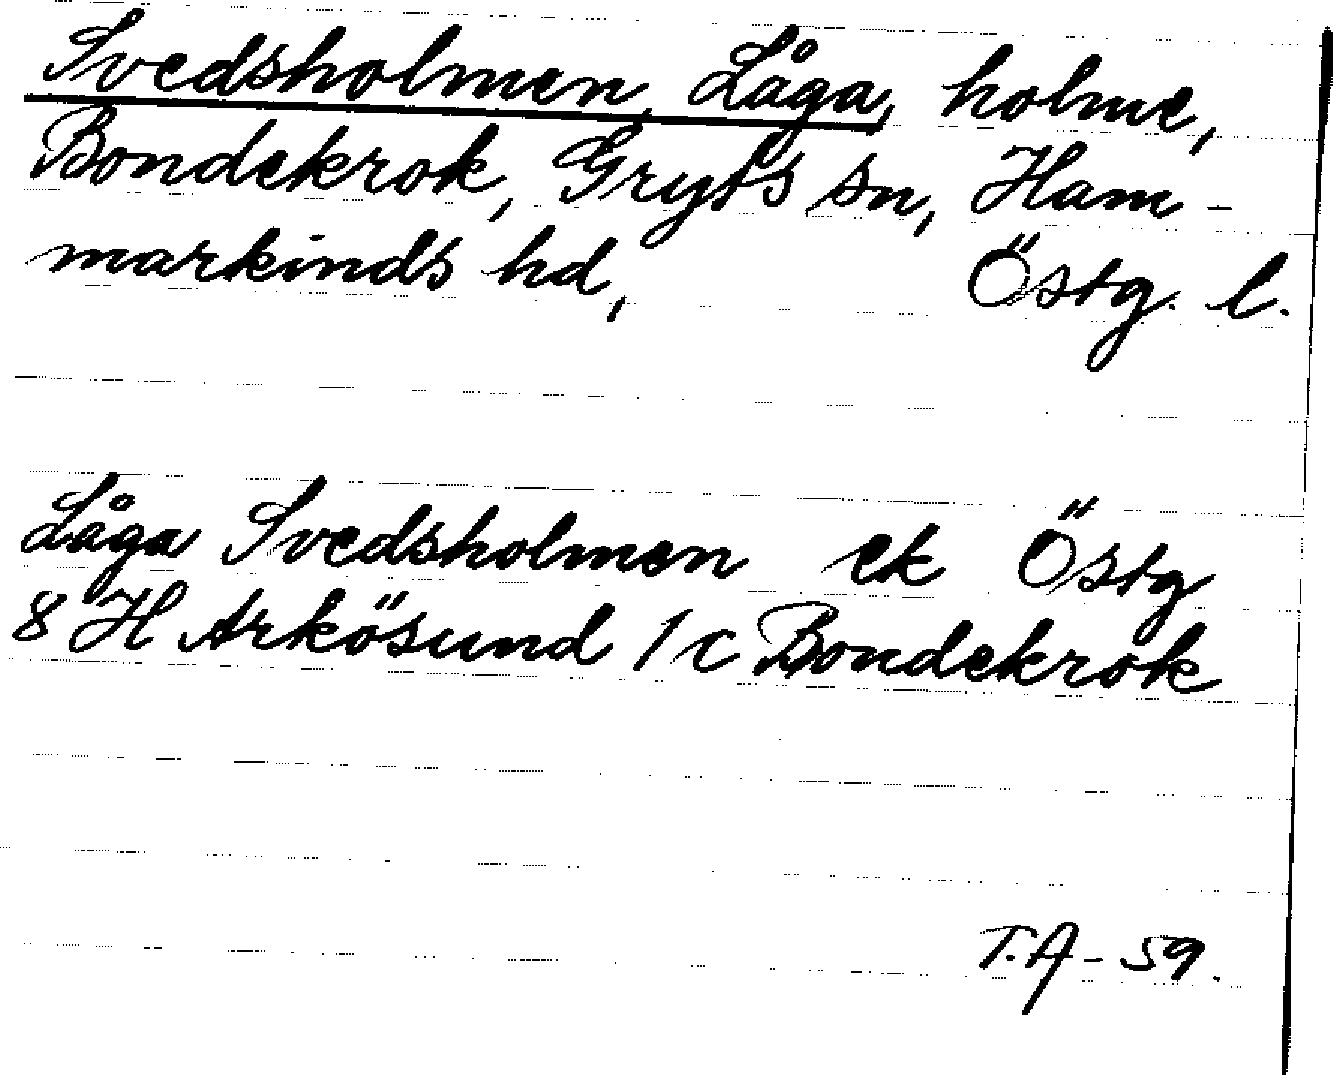 Svedsholmen, Låga, holme,
Bondekrok, Gryts sn, Ham-
markinds hd, Östg. l.
Låga Svedsholmen ek Östg
8 H Arkösund 1 c Bondekrok
T.A - 59.